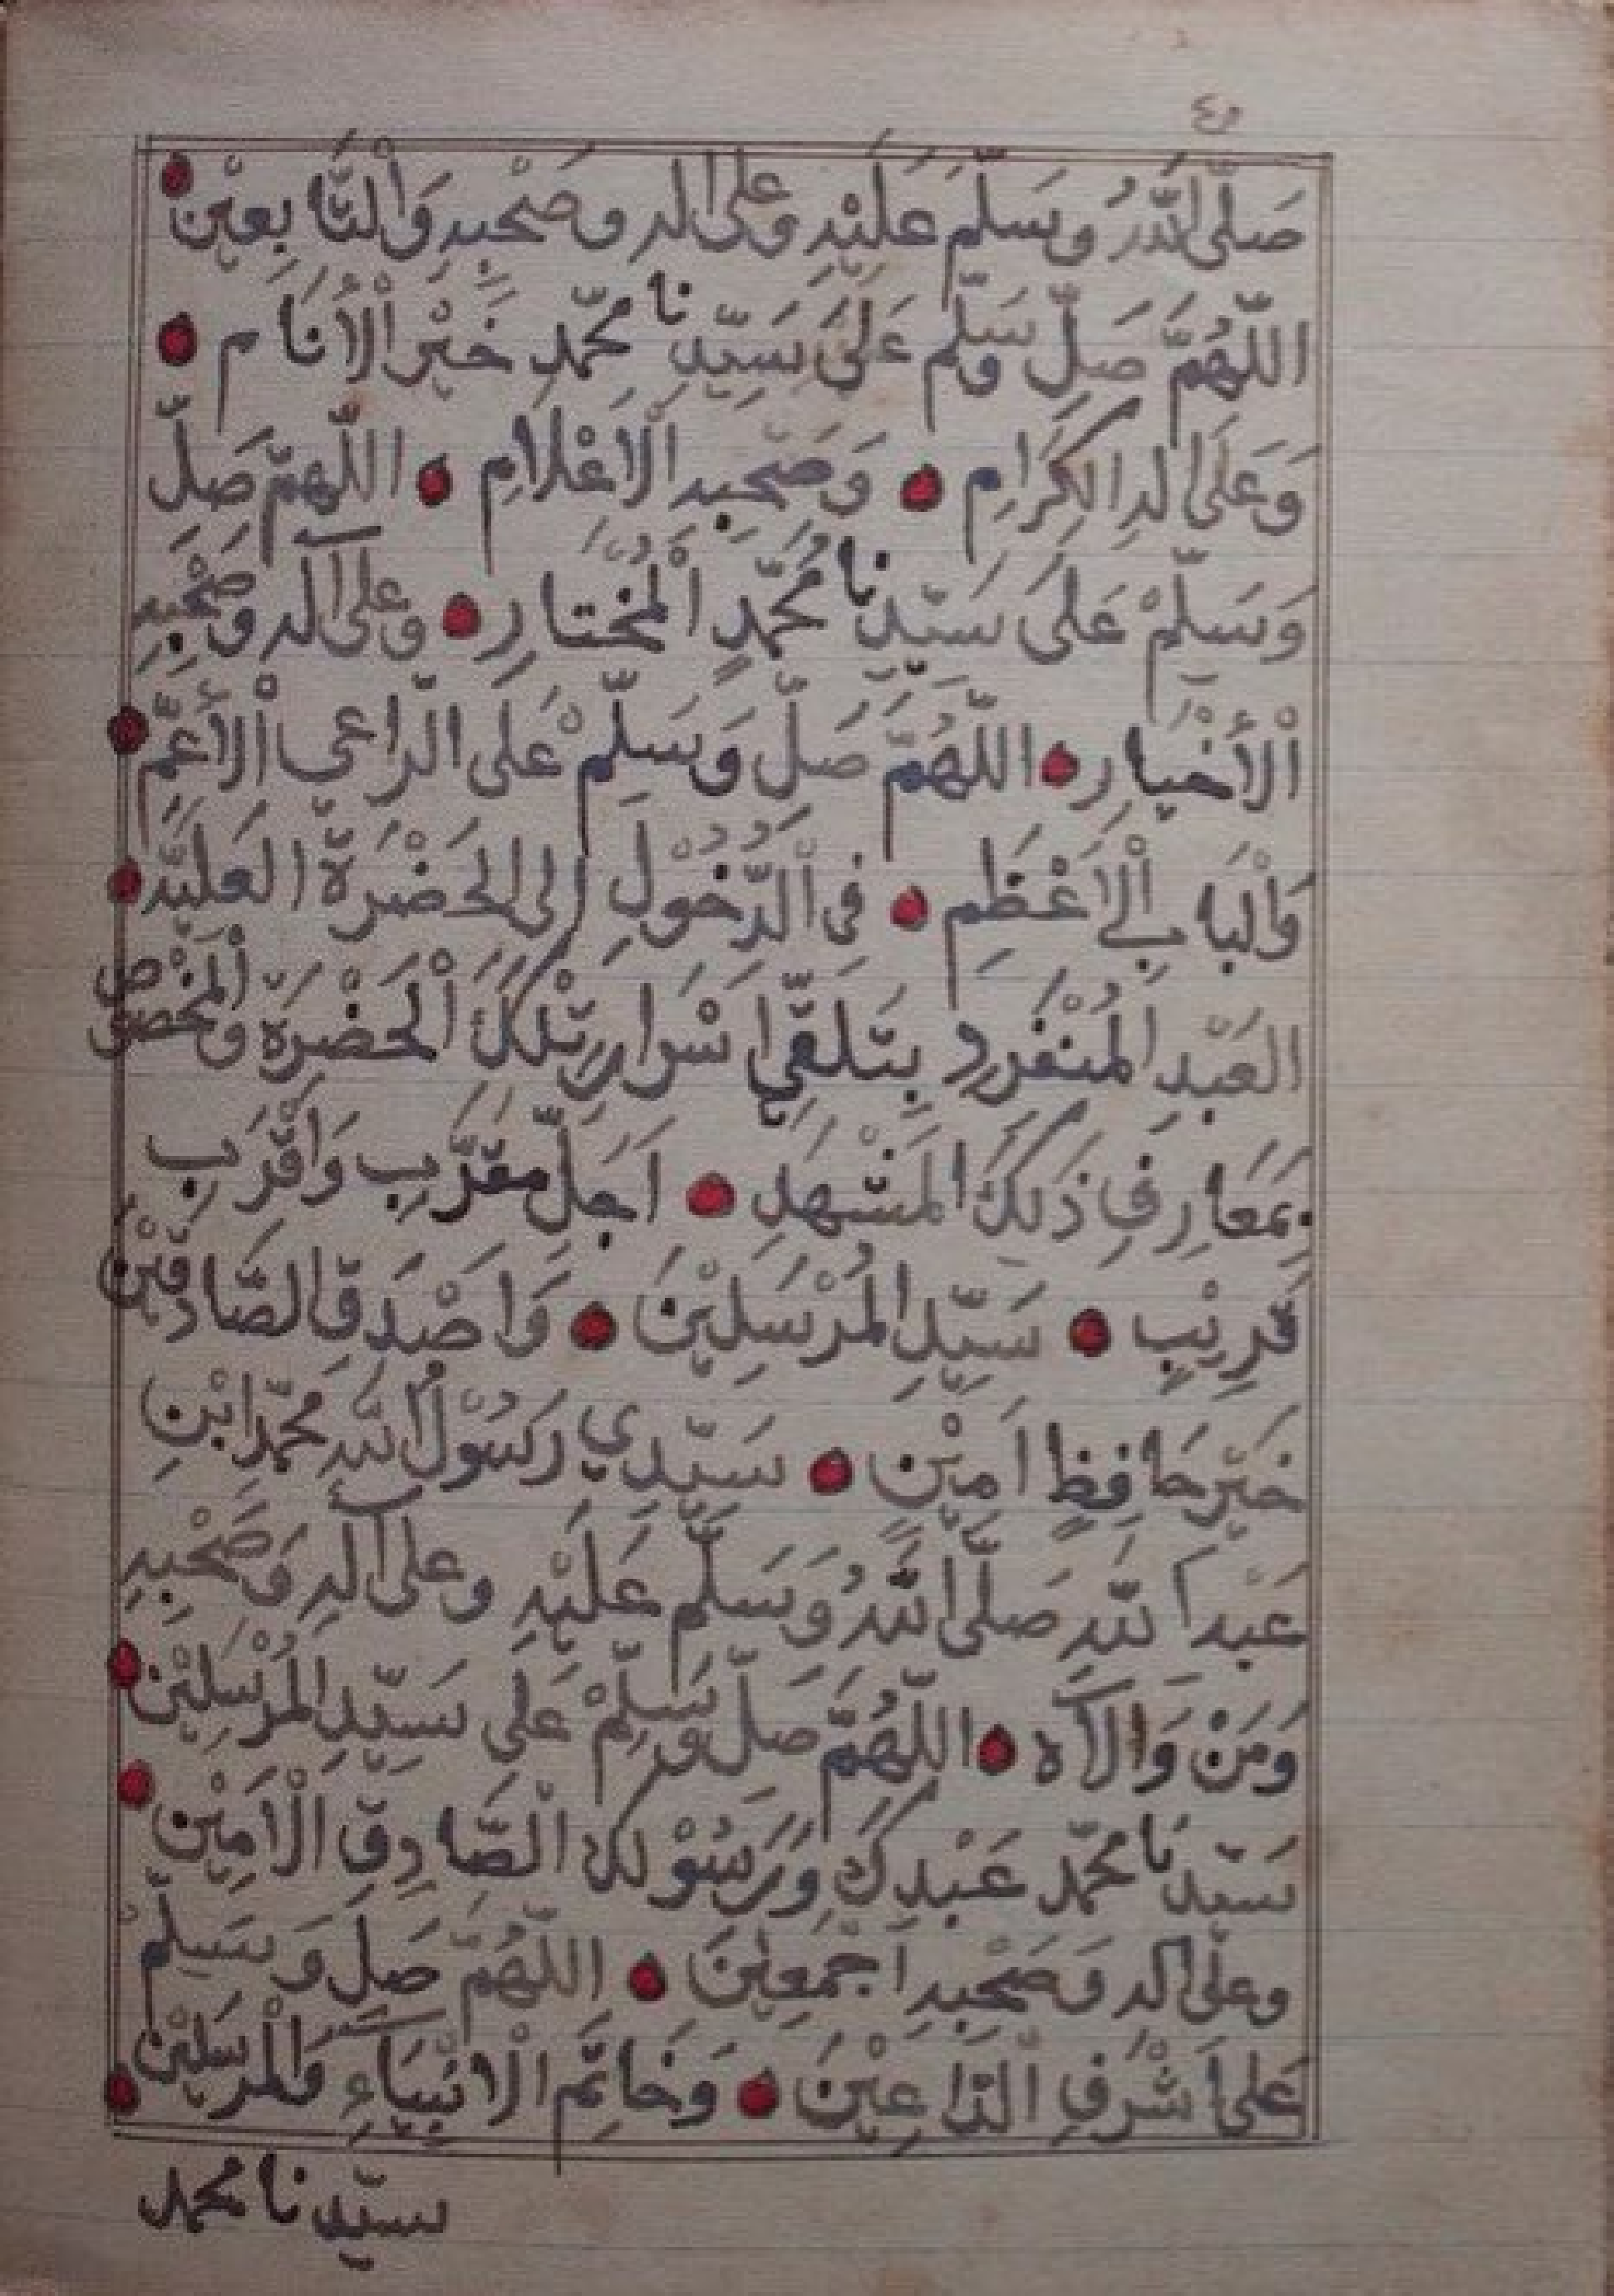 صَلَّى اللّٰهُ وَسَلَّمَ عَلَيْهِ وَعَلَى الِهِ وَصَحْبِهِ وَالتَّابِعِيْن
اللّٰهُمَّ صَلِّ وَسَلِّم عَلَى سَيِّدِنَا مُحَمَّدٍ خَيْرِ الْأَنَام
وَعَلَى الِهِ الكِرَامِ وَصَحْبِهِ الَاعْلَامِ اللّٰهُمَّ صَلِّ
وَسَلِّمْ عَلَى سَيِّدِنَا مُحَمَّدٍ الْمُخْتَارِ وَعَلَى آلِهِ وَصَحْبِهِ
الْأَخْيَارِ اللّٰهُمَّ صَلِّ وَسَلِّمْ عَلَى الدَّاعِي الْأَعَمِّ
وَالْبَابِ الْاَعْظَمِ فِى الدُّخُوْلِ إِلَى الحَضْرَةِ العَلِيَّة
العَبْدِ الْمُنْفَرِدِ بِتَلَقِّي اَسْرَارِ تِلْكَ الْحَضْرَة وَالْمَخْصُوْصِ
بِمَعَارِفِ ذَلِكَ الْمَشْهَدِ اَجَلِّ مقَرَّبٍ وَاَقْرَبِ
قَرِيْبٍ سَيِّدِ الْمُرْسَلِيْنَ وَاَصْدَقِ الصَّادِقِيْنَ
خَيْرِ حَافِظٍ اَمِيْنٍ سَيِّدِي رَسُوْلِ اللّٰهِ مُحَمَّدِ ابْنِ
عَبْدِ اللّٰهِ صَلَّى اللّٰهُ وَسَلَّمَ عَلَيْهِ وَعَلَى آلِهِ وَصَحْبِهِ
وَمَنْ وَالَاَه اللّٰهُمَّ صَلِّ وَسَلِّمْ عَلَى سَيِّدِ الْمُرْسَلِيْن
سَيِّدِنَا مُحَمَّد عَبْدِكَ وَرَسُوْلِكَ الصَّادِقِ الْاَمِيْن
وعلَى الِهِ وَصَحْبِهِ اَجْمَعِيْنَ اللّٰهُمَّ صَلِّ وَسَلِّمْ
عَلَى اَشْرَفِ الدَّاعِيْنَ وَخَاتَمِ الْاَنْبِيَآءِ وَالْمُرْسَلِيْن
سيّدنا محمد